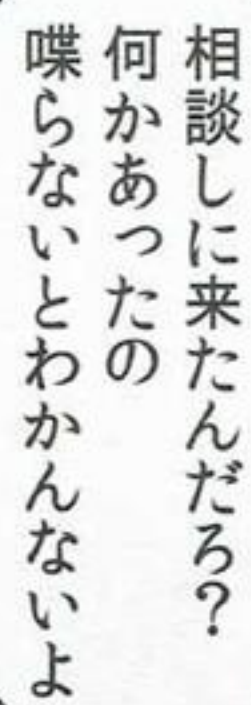 相談しに来たんだろ？
何かあったの
喋らないとわかんないよ